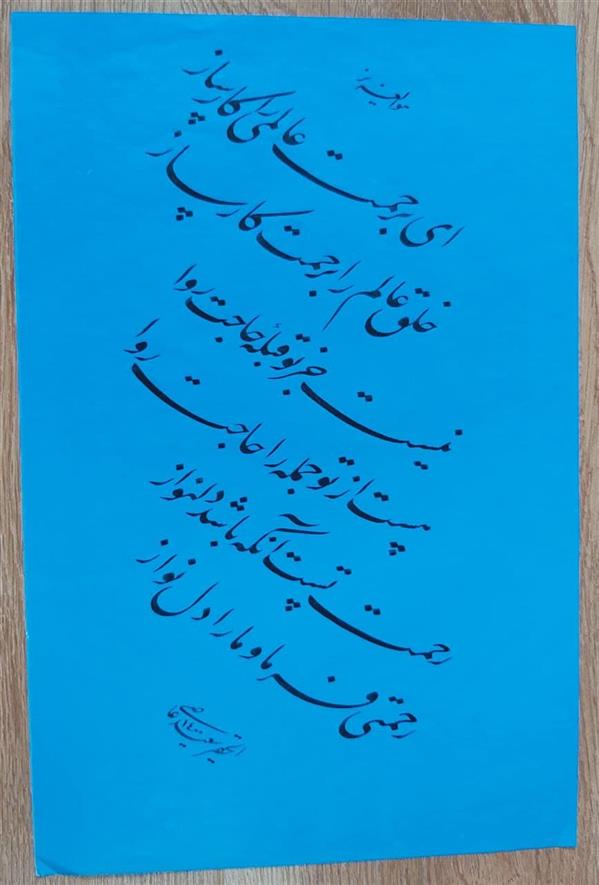 هوالعزیز
ای برحمت عالمی را کارساز
خلق عالم را برحمت کارساز
نیست جز تو قبلهٔ حاجت روا
هست از تو جمله را حاجت روا
رحمت تست آنکه باشد دلنواز
رحمتی فرما و ما را دل نواز